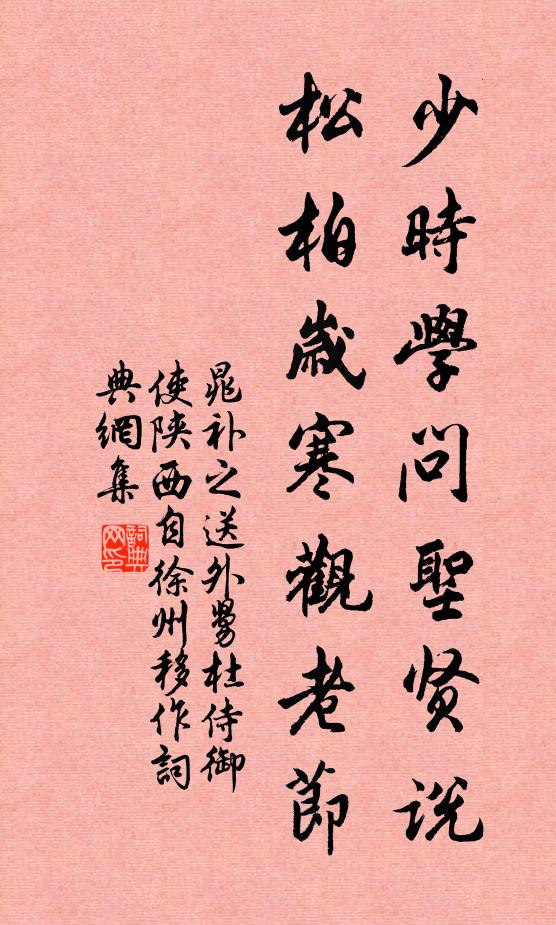 少時學問聖贤说
松柏歲寒觀老節
晁补之送外舅杜侍御
使陕西自徐州移作詞
典網集
詞典網印